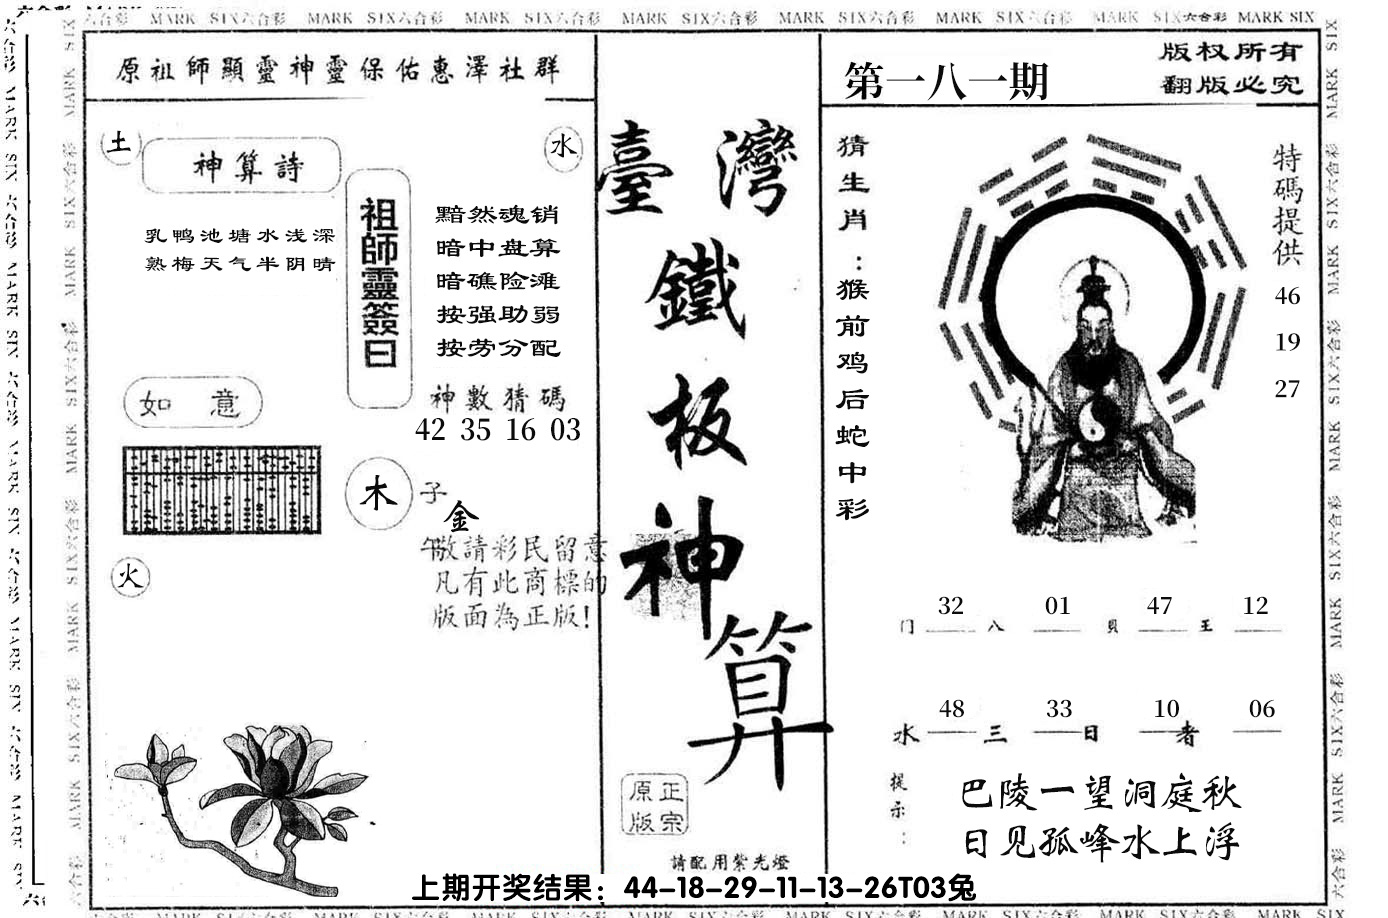 六合彩 MARK SIX六合彩 MARK SIX六合彩 MARK SIX六合彩 MARK SIX六合彩 MARK SIX六合彩 MARK SIX六合彩 MARK SIX六合彩 MARK SIX
原祖師顯靈神靈保佑惠澤社群
土
水
神算詩
乳鸭池塘水浅深
熟梅天气半阴晴
祖師靈簽曰
黯然魂销
暗中盘算
暗礁险滩
按强助弱
按劳分配
神數猜碼
42 35 16 03
如 意
木
子
金
午
敬請彩民留意
凡有此商標的
版面為正版!
火
臺灣
鐵
板
神
算
正宗
原版
請配用紫光燈
第一八一期
版权所有
翻版必究
猜生肖:猴前鸡后蛇中彩
特碼提供
46
19
27
32 01 47 12
门 八 貝 王
48 33 10 06
水 三 日 者
提示:
巴陵一望洞庭秋
日见孤峰水上浮
上期开奖结果：44-18-29-11-13-26T03兔